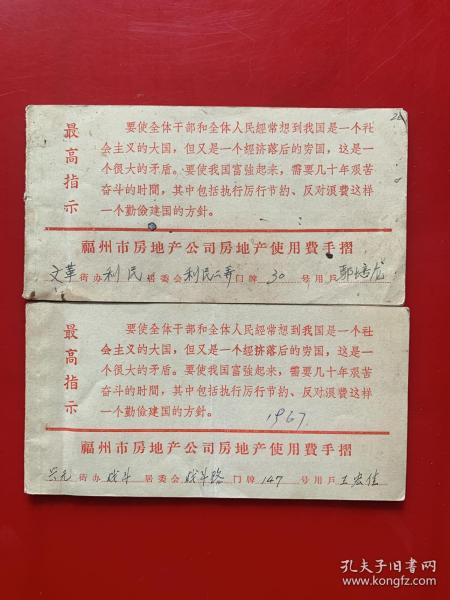 最高指示
要使全体干部和全体人民經常想到我国是一个社
会主义的大国，但又是一个經济落后的穷国，这是一
个很大的矛盾。要使我国富強起来，需要几十年艰苦
奋斗的时間，其中包括执行厉行节約、反对浪費这样
一个勤儉建国的方針。
福州市房地产公司房地产使用費手摺
文革街办利民居委会利民二弄门牌30号用戶
最高指示
要使全体干部和全体人民經常想到我国是一个社
会主义的大国，但又是一个經济落后的穷国，这是一
个很大的矛盾。要使我国富強起来，需要几十年艰苦
奋斗的时間，其中包括执行厉行节約、反对浪費这样
一个勤儉建国的方針。
1967.
福州市房地产公司房地产使用費手摺
街办战斗居委会战斗路门牌147号用戶王宏佳
孔夫子旧书网
kongfz.com